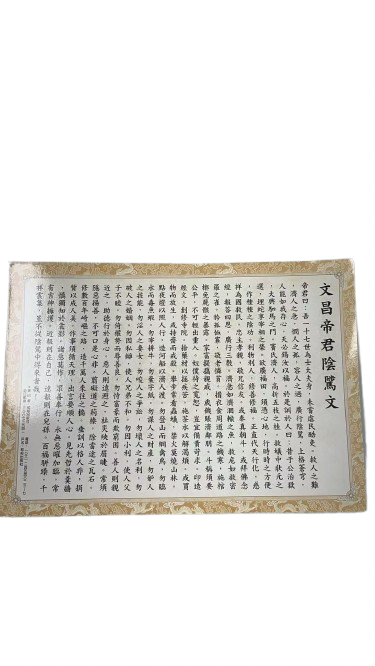 文昌帝君陰騭文
帝君曰：吾一十七世為士大夫身，未嘗虐民酷吏。救人之難
，濟人之急，憫人之孤，容人之過，廣行陰騭，上格蒼穹。
人能如我存心，天必錫汝以福。於是訓於人曰：昔于公治獄
，大興駟馬之門。竇氏濟人，高折五枝之桂。救蟻中狀元之
選，埋蛇享宰相之榮。欲廣福田，須憑心地。行時時之方便
，作種種之陰功。利物利人，修善修福。正直代天行化，慈
祥為國救民。忠主孝親，敬兄信友。或奉真朝斗，或拜佛念
經。報答四恩，廣行三教。濟急如濟涸轍之魚，救危如救密
羅之雀。矜孤恤寡，敬老憐貧。措衣食周道路之饑寒，施棺
槨免屍骸之暴露。家富提攜親戚，歲饑賑濟鄰朋。斗稱須要
公平，不可輕出重入。奴僕待之寬恕，豈宜備責苛求。印造
經文，創修寺院。捨藥材以拯疾苦，施茶水以解渴煩。或買
物而放生，或持齋而戒殺。舉步常看蟲蟻，禁火莫燒山林。
點夜燈以照人行，造河船以濟人渡。勿登山而網禽鳥，勿臨
水而毒魚蝦。勿宰耕牛，勿棄字紙。勿謀人之財產，勿妒人
之技能。勿淫人之妻女，勿唆人之爭訟。勿壞人之名利，勿
破人之婚姻。勿因私讎，使人兄弟不和。勿因小利，使人父
子不睦。勿倚權勢而辱善良，勿恃富豪而欺窮困。善人則親
近之，助德行於身心。惡人則遠避之，杜災殃於眉睫。常須
隱惡揚善，不可口是心非。翦礙道之荊榛，除當途之瓦石。
修數百年崎嶇之路，造千萬人來往之橋。垂訓以格人非，捐
貲以成人美。作事須循天理，出言要順人心。見先哲於羹牆
，慎獨知於衾影。諸惡莫作，眾善奉行。永無惡曜加臨，常
有吉神擁護。近報則在自己，遠報則在兒孫。百福駢臻，千
祥雲集，豈不從陰騭中得來者哉。